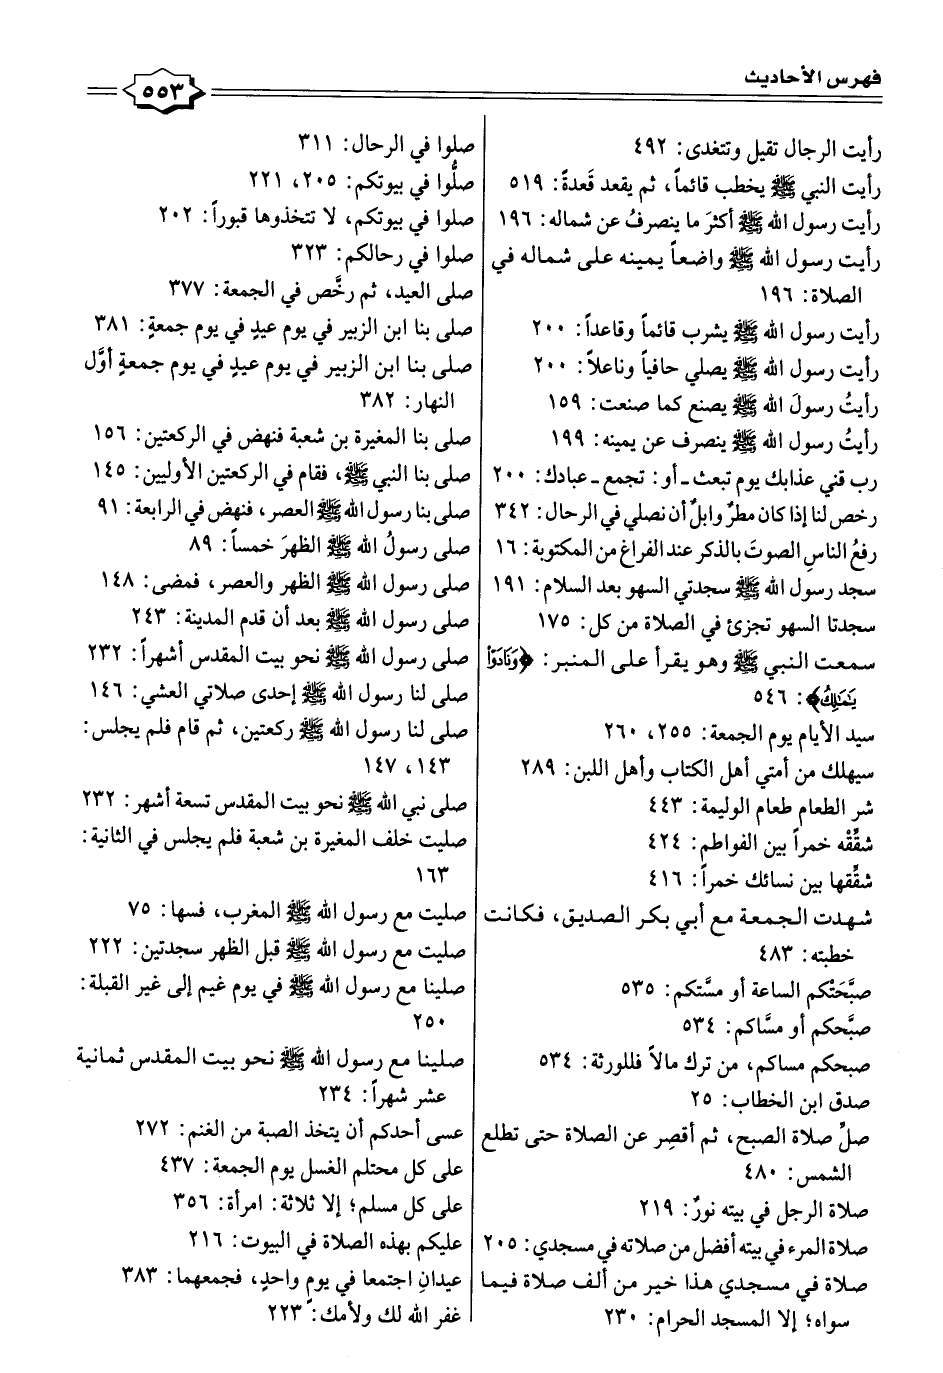 فهرس الأحاديث
٥٥٣
رأيت الرجال تقيل وتتغدى: ٤٩٢
رأيت النبي ﷺ يخطب قائماً، ثم يقعد قَعدةً: ٥١٩
رأيت رسول الله ﷺ أكثرَ ما ينصرفُ عن شماله: ١٩٦
رأيت رسول الله ﷺ واضعاً يمينه على شماله في
الصلاة: ١٩٦
رأيت رسول الله ﷺ يشرب قائماً وقاعداً: ٢٠٠
رأيت رسول الله ﷺ يصلي حافياً وناعلاً: ٢٠٠
رأيتُ رسولَ الله ﷺ يصنع كما صنعت: ١٥٩
رأيتُ رسول الله ﷺ ينصرف عن يمينه: ١٩٩
رب قني عذابك يوم تبعث ـ أو: تجمع ـ عبادك: ٢٠٠
رخص لنا إذا كان مطرٌ وابلٌ أن نصلي في الرحال: ٣٤٢
رفعُ الناسِ الصوتَ بالذكر عند الفراغ من المكتوبة: ١٦
سجد رسول الله ﷺ سجدتي السهو بعد السلام: ١٩١
سجدتا السهو تجزئ في الصلاة من كل: ١٧٥
سمعت النبي ﷺ وهو يقرأ على المنبر: ﴿وَنَادَوْا
يَـٰمَـٰلِكُ﴾: ٥٤٦
سيد الأيام يوم الجمعة: ٢٥٥، ٢٦٠
سيهلك من أمتي أهل الكتاب وأهل اللبن: ٢٨٩
شر الطعام طعام الوليمة: ٤٤٣
شقِّقْه خمراً بين الفواطم: ٤٢٤
شقِّقها بين نسائك خمراً: ٤١٦
شهدت الجمعة مع أبي بكر الصديق، فكانت
خطبته: ٤٨٣
صبَّحَتْكم الساعة أو مسَّتكم: ٥٣٥
صبَّحكم أو مسَّاكم: ٥٣٤
صبحكم مساكم، من ترك مالاً فللورثة: ٥٣٤
صدق ابن الخطاب: ٢٥
صلِّ صلاة الصبح، ثم أقصِر عن الصلاة حتى تطلع
الشمس: ٤٨٠
صلاة الرجل في بيته نورٌ: ٢١٩
صلاة المرء في بيته أفضل من صلاته في مسجدي: ٢٠٥
صلاة في مسجدي هذا خير من ألف صلاة فيما
سواه؛ إلا المسجد الحرام: ٢٣٠
صلوا في الرحال: ٣١١
صلُّوا في بيوتكم: ٢٠٥، ٢٢١
صلوا في بيوتكم، لا تتخذوها قبوراً: ٢٠٢
صلوا في رحالكم: ٣٢٣
صلى العيد، ثم رخَّص في الجمعة: ٣٧٧
صلى بنا ابن الزبير في يوم عيدٍ في يوم جمعةٍ: ٣٨١
صلى بنا ابن الزبير في يوم عيدٍ في يوم جمعةٍ أوَّل
النهار: ٣٨٢
صلى بنا المغيرة بن شعبة فنهض في الركعتين: ١٥٦
صلى بنا النبي ﷺ، فقام في الركعتين الأوليين: ١٤٥
صلى بنا رسول الله ﷺ العصر، فنهض في الرابعة: ٩١
صلى رسولُ الله ﷺ الظهرَ خمساً: ٨٩
صلى رسول الله ﷺ الظهر والعصر، فمضى: ١٤٨
صلى رسول الله ﷺ بعد أن قدم المدينة: ٢٤٣
صلى رسول الله ﷺ نحو بيت المقدس أشهراً: ٢٣٢
صلى لنا رسول الله ﷺ إحدى صلاتي العشي: ١٤٦
صلى لنا رسول الله ﷺ ركعتين، ثم قام فلم يجلس:
١٤٣، ١٤٧
صلى نبي الله ﷺ نحو بيت المقدس تسعة أشهر: ٢٣٢
صليت خلف المغيرة بن شعبة فلم يجلس في الثانية:
١٦٣
صليت مع رسول الله ﷺ المغرب، فسها: ٧٥
صليت مع رسول الله ﷺ قبل الظهر سجدتين: ٢٢٢
صلينا مع رسول الله ﷺ في يوم غيم إلى غير القبلة:
٢٥٠
صلينا مع رسول الله ﷺ نحو بيت المقدس ثمانية
عشر شهراً: ٢٣٤
عسى أحدكم أن يتخذ الصبة من الغنم: ٢٧٢
على كل محتلم الغسل يوم الجمعة: ٤٣٧
على كل مسلم؛ إلا ثلاثة: امرأة: ٣٥٦
عليكم بهذه الصلاة في البيوت: ٢١٦
عيدانِ اجتمعا في يومٍ واحدٍ، فجمعهما: ٣٨٣
غفر الله لك ولأمك: ٢٢٣